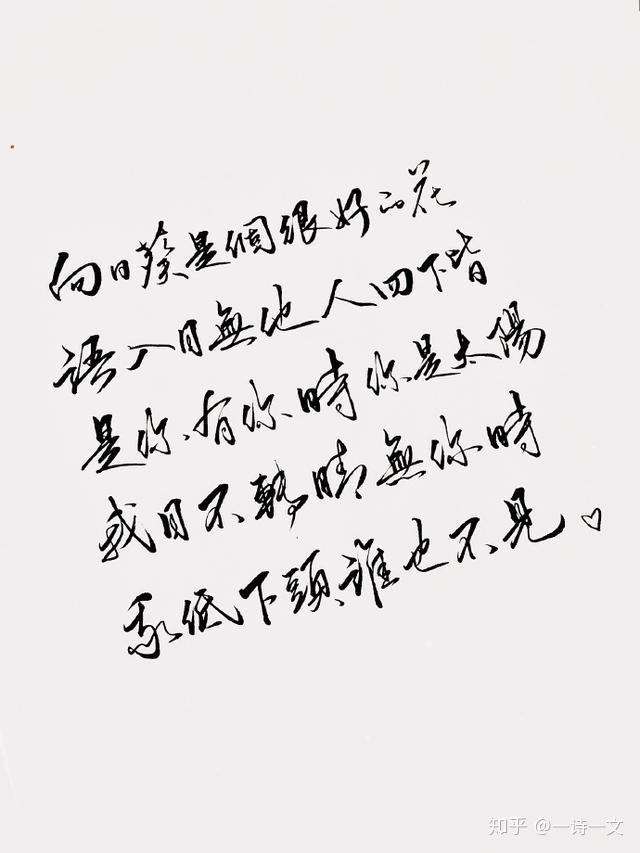 向日葵是個很好的花
語入目無他人四下皆
是你、有你時你是太陽
我目不轉睛無你時
我低下頭、誰也不見。
知乎 @一诗一文